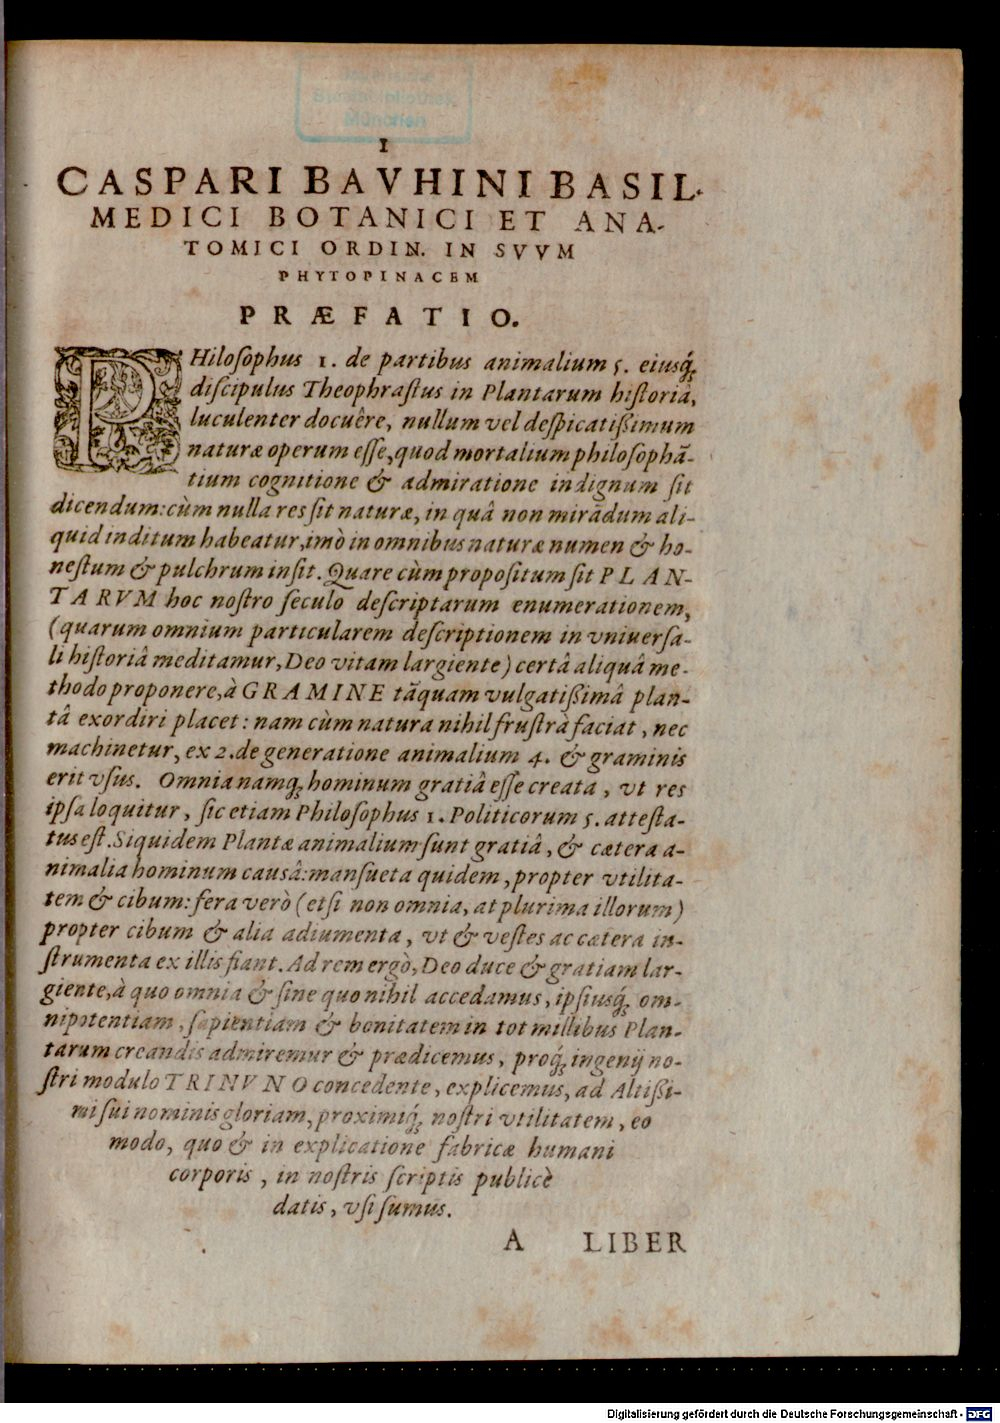 Bayerische
Staatsbibliothek
München
I
CASPARI BAVHINI BASIL.
MEDICI BOTANICI ET ANA-
TOMICI ORDIN. IN SVVM
PHYTOPINACEM
PRÆFATIO.
PHiloſophus 1. de partibus animalium 5. eiusq́;
diſcipulus Theophraſtus in Plantarum hiſtoriâ,
luculenter docuêre, nullum vel deſpicatißimum
naturæ operum eſſe, quod mortalium philoſophā-
tium cognitione & admiratione indignum ſit
dicendum: cùm nulla res ſit naturæ, in quâ non mirādum ali-
quid inditum habeatur, imò in omnibus naturæ numen & ho-
neſtum & pulchrum inſit. Quare cùm propoſitum ſit PLAN-
TARVM hoc noſtro ſeculo deſcriptarum enumerationem,
(quarum omnium particularem deſcriptionem in vniuerſa-
li hiſtoriâ meditamur, Deo vitam largiente) certâ aliquâ me-
thodo proponere, à GRAMINE tāquam vulgatißimâ plan-
tâ exordiri placet: nam cùm natura nihil fruſtrà faciat, nec
machinetur, ex 2. de generatione animalium 4. & graminis
erit vſus. Omnia namq; hominum gratiâ eſſe creata, vt res
ipſa loquitur, ſic etiam Philoſophus 1. Politicorum 5. atteſta-
tus eſt. Siquidem Plantæ animalium ſunt gratiâ, & cætera a-
nimalia hominum causâ: manſueta quidem, propter vtilita-
tem & cibum: fera verò (etſi non omnia, at plurima illorum)
propter cibum & alia adiumenta, vt & veſtes ac cætera in-
ſtrumenta ex illis fiant. Ad rem ergò, Deo duce & gratiam lar-
giente, à quo omnia & ſine quo nihil accedamus, ipſiusq́; om-
nipotentiam, ſapientiam & bonitatem in tot millibus Plan-
tarum creandis admiremur & prædicemus, proq́; ingenij no-
ſtri modulo TRINVNO concedente, explicemus, ad Altißi-
mi ſui nominis gloriam, proximiq́; noſtri vtilitatem, eo
modo, quo & in explicatione fabricæ humani
corporis, in noſtris ſcriptis publicè
datis, vſi ſumus.
A LIBER
Digitalisierung gefördert durch die Deutsche Forschungsgemeinschaft - DFG